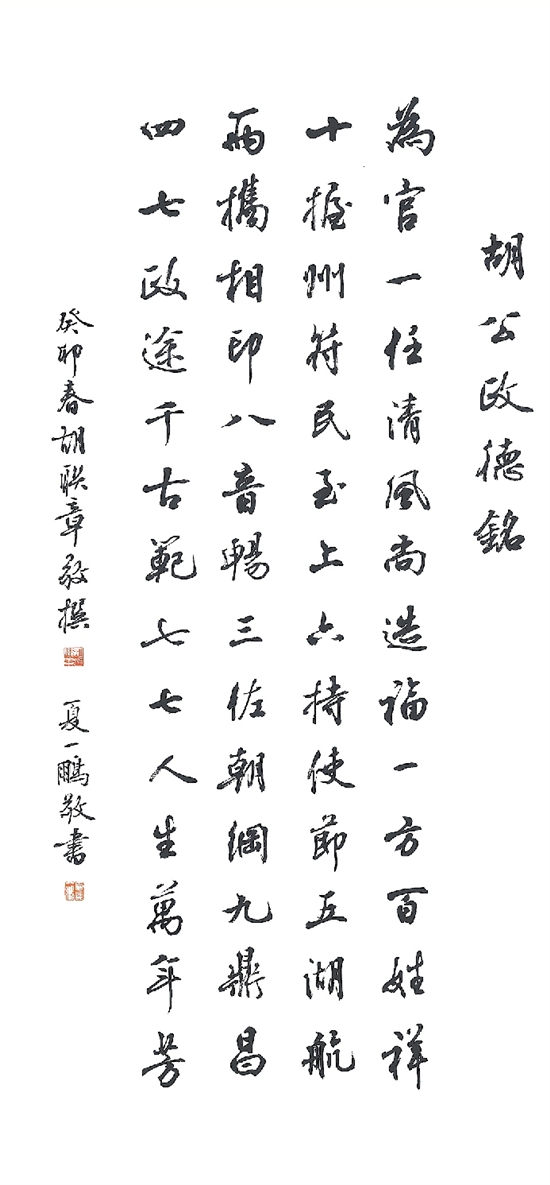 胡公政德銘
為官一任清風尚造福一方百姓祥
十握州符民至上六持使節五湖航
兩攜相印八音暢三佐朝綱九鼎昌
四七政途千古範七七人生萬年芳
癸卯春胡联章敬撰
夏一鵬敬書